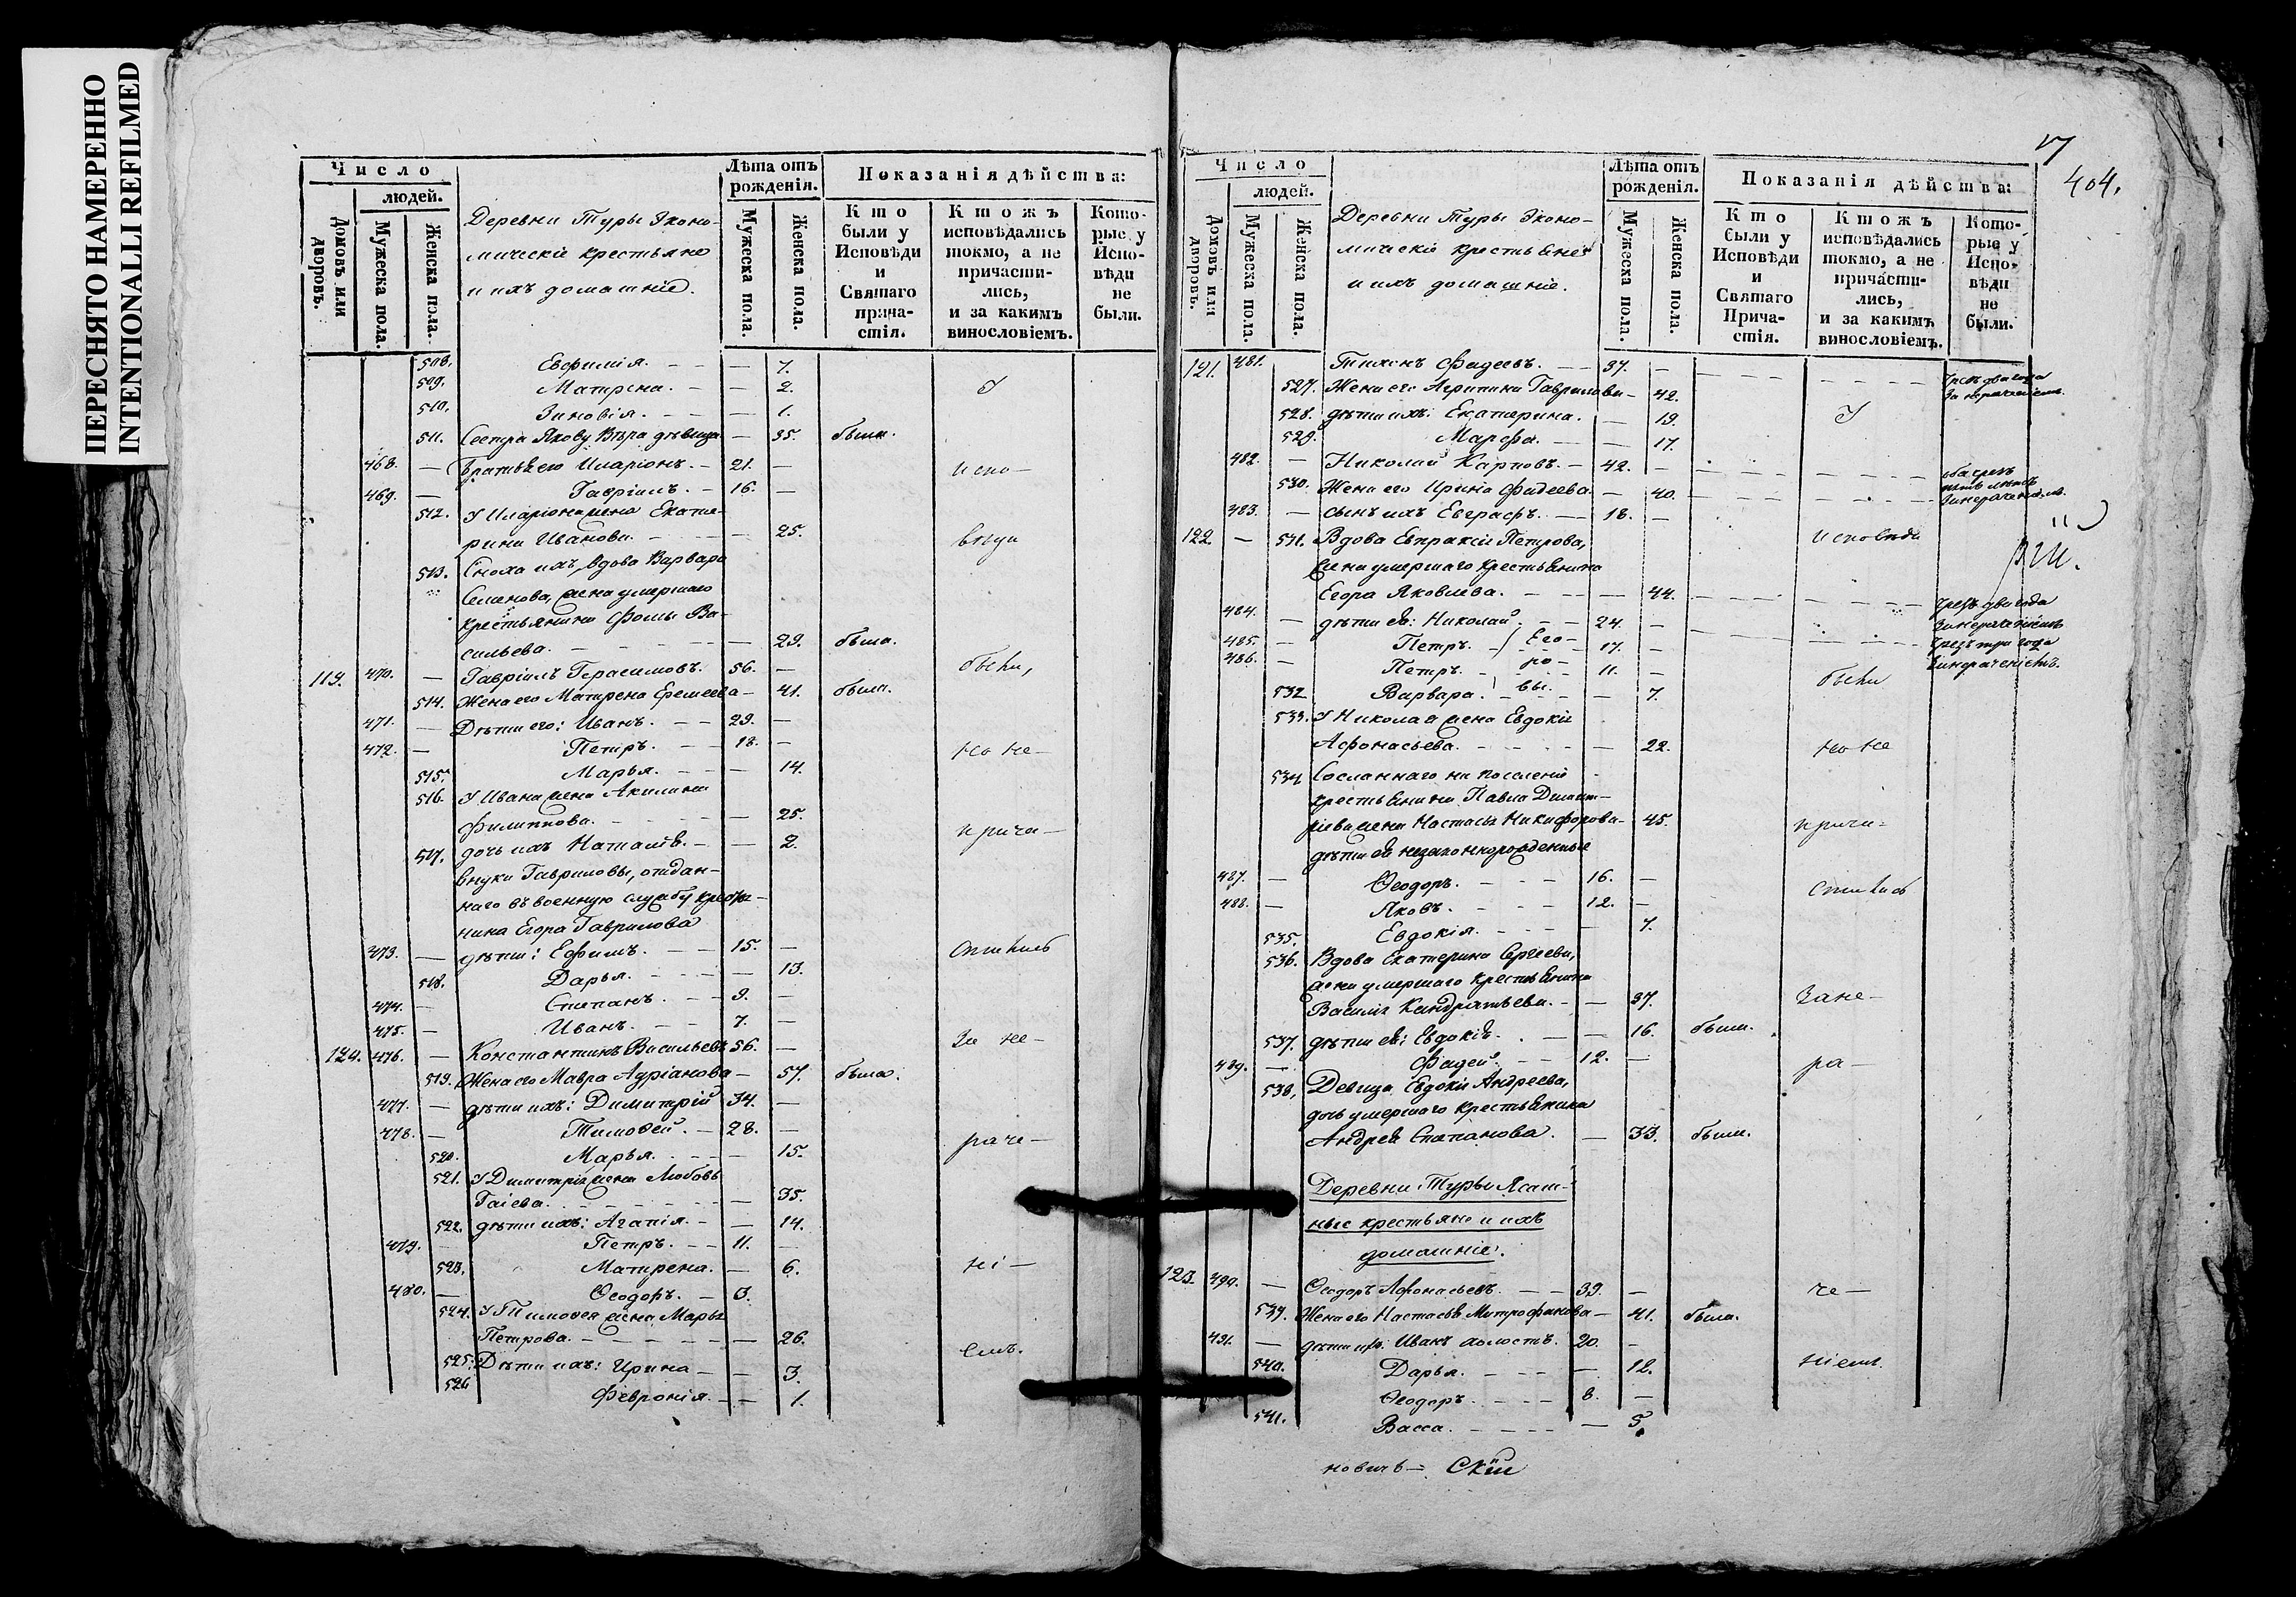 ПЕРЕСНЯТО НАМЕРЕННО
INTENTIONALLI REFILMED
Число
людей.
Домовъ или дворовъ.
Мужеска пола.
Женска пола.
Деревни Туры Эконо-
мическіе крестьяне
и ихъ домашніе.
Лѣта отъ рожденія.
Мужеска пола.
Женска пола.
Показанія дѣйства:
Кто были у Исповѣди и Святаго прича-стія.
Ктожъ исповѣдались токмо, а не причасти-лись, и за какимъ винословіемъ.
Кото-рые у Испо-вѣди не были.
508. Евфимія. — 7.
509. Матрена. — 2. У
510. Зиновія. — 1.
511. Сестра Якову Вѣра дѣвица — 35. была.
468. — Братья его Иларіонъ. — 21. — испо-
469. — Гавріилъ. — 16. —
512. У Иларіона жена Екате-
рина Иванова. — 25. вѣди
513. Сноха ихъ, вдова Варвара
Семенова, жена умершаго
крестьянина Фомы Ва-
сильева. — 29. была.
119. 470. — Гавріилъ Герасимовъ. 56. — были,
514. Жена его Матрена Еремеева — 41. была.
471. — Дѣти его: Иванъ. — 29. —
472. — Петръ. — 18. — но не-
515. Марья. — 14.
516. У Ивана жена Акилина
Филиппова. — 25.
517. дочь ихъ Наталія. — 2. прича-
внуки Гавриловы, отдан-
наго въ военную службу крестья-
нина Егора Гаврилова
473. — дѣти: Ефимъ. — 15. — стились
518. Дарья. — 13.
474. — Степанъ. — 9. —
475. — Иванъ. — 7. —
120. 476. — Константинъ Васильевъ 56. — За не-
519. Жена его Мавра Адріанова — 57. была.
477. — дѣти ихъ: Димитрій 34. —
478. — Тимоѳей. — 28. —
520. Марья. — 15. раче-
521. У Димитрія жена Любовь
Гаіева. — 35.
522. дѣти ихъ: Агапія. — 14.
479. — Петръ. — 11. —
523. Матрена. — 6. ні-
480. — Ѳеодоръ. — 3.
524. У Тимоѳея жена Марья
Петрова. — 26.
525. Дѣти ихъ: Ирина — 3. емъ.
526. Февронія. — 1.
17
404.
Число
людей.
Домовъ или дворовъ.
Мужеска пола.
Женска пола.
Деревни Туры Эконо-
мическіе крестьяне
и ихъ домашніе.
Лѣта отъ рожденія.
Мужеска пола.
Женска пола.
Показанія дѣйства:
Кто были у Исповѣди и Святаго Прича-стія.
Ктожъ исповѣдались токмо, а не причасти-лись, и за какимъ винословіемъ.
Кото-рые у Испо-вѣди не были.
121. 481. Тихонъ Фадеевъ. — 37. — чрезъ два года
527. Жена его Агрипина Гаврилова — 42. За нераченіемъ.
528. дѣти ихъ: Екатерина. — 19. У
529. Марфа. — 17.
482. — Николай Карповъ. — 42. — оба чрезъ
530. Жена его Ирина Фадеева. — 40. — пять лѣтъ За нераченіемъ.
483. — сынъ ихъ Евграфъ. — 18. —
122. — 531. Вдова Евпраксія Петрова, исповѣди
жена умершаго крестьянина
Егора Яковлева. — 44. — чрезъ два года
484. — дѣти ея: Николай. — 24. — За нераченіемъ
485. — Петръ. — Его- 17. — чрезъ три года
486. — Петръ. — ро- 11. — За нераченіемъ.
532. Варвара. вы. — 7. были
533. У Николая жена Евдокія
Аѳонасьева. — 22. но не
534. Сосланнаго на поселеніе
крестьянина Павла Димит-
ріева жена Настасья Никифорова — 45. прича-
дѣти ея незаконнорожденные
487. — Ѳеодоръ. — 16. — стились
488. — Яковъ. — 12. —
535. Евдокія. — 7.
536. Вдова Екатерина Сергеева,
жена умершаго крестьянина
Василія Кандратьева. — 37. Зане-
537. дѣти ея: Евдокія. — 16. была.
489. — Фадей. — 12. — ра-
538. Девица Евдокія Андреева,
дочь умершаго крестьянина
Андрея Степанова. — 33. была.
Деревни Туры Ясаш-
ные крестьяне и ихъ
домашніе.
123. 490. — Ѳеодоръ Аѳонасьевъ. — 39. — че-
539. Жена его Настасья Митрофанова — 41. была.
491. — дѣти ихъ: Иванъ холостъ. 20. —
540. Дарья. — 12. ніемъ.
Ѳеодоръ. — 8. —
541. Васса. — 5.
новичъ — Скій